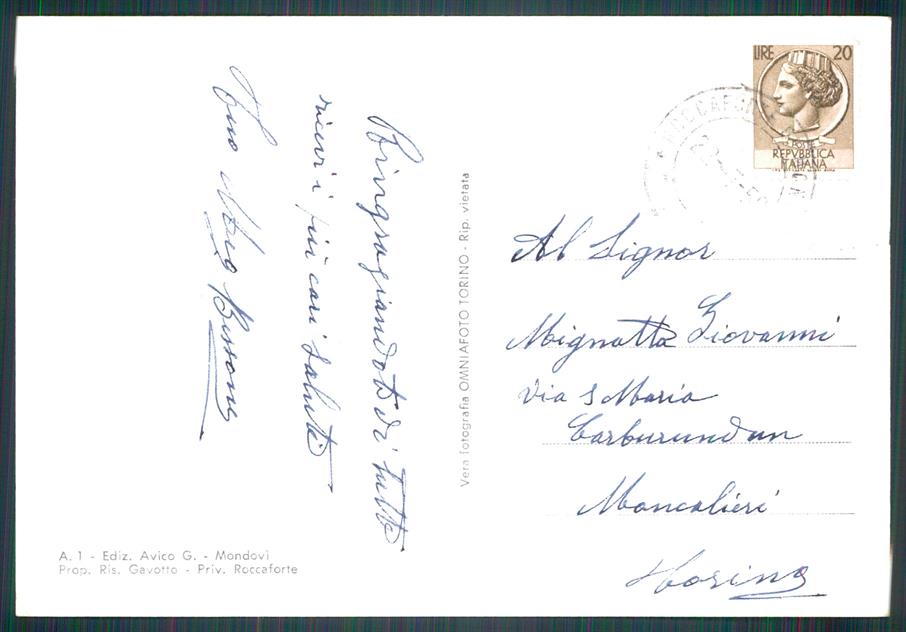 Ringragiandoti di tutto
ricevi i piu cari saluti
tuo
Vera fotografia OMNIAFOTO TORINO - Rip. vietata
LIRE 20
POSTE
REPVBBLICA
ITALIANA
Al Signor
Mignatta Giovanni
via S Maria
Carburundun
Moncalieri
Torino
A. 1 - Ediz. Avico G. - Mondovì
Prop. Ris. Gavotto - Priv. Roccaforte